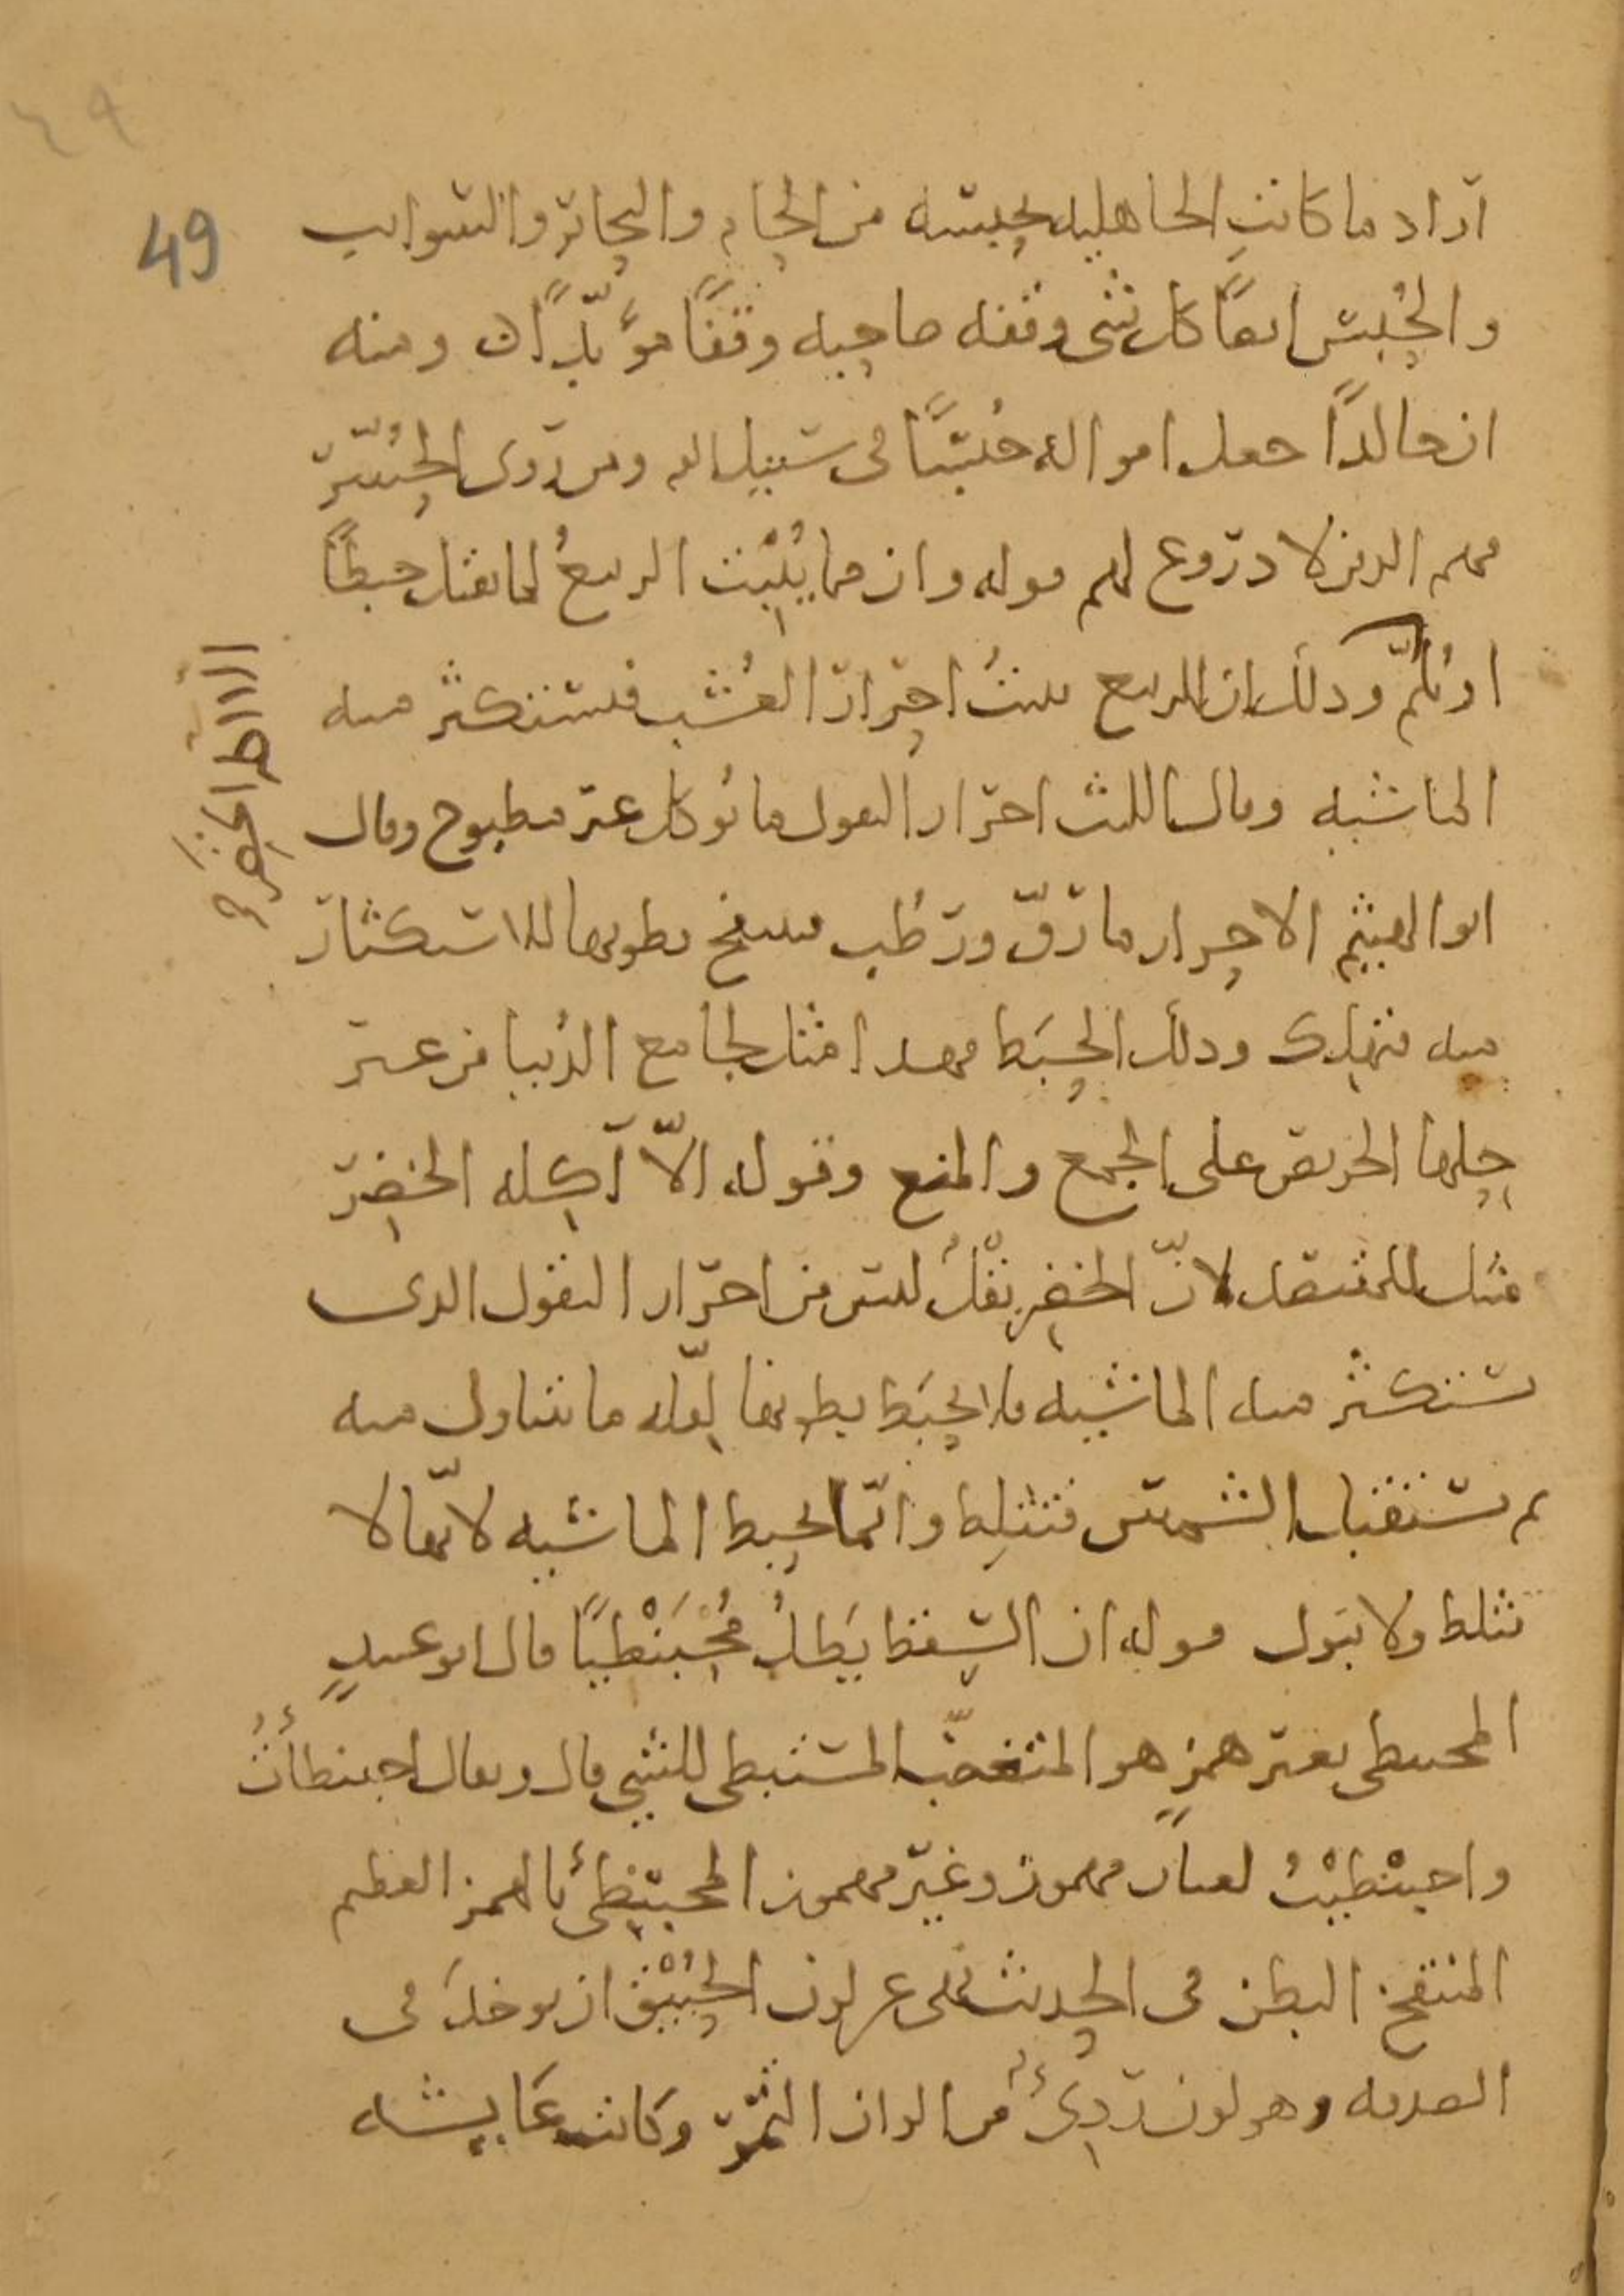 ٤٩
49
اراد ما كانت الجاهلية تحبسه من الحام والبحاير والسوايب
والحبس ايضًا كل شى وقفه صاحبه وقفًا مؤبدًا ومنه
ان خالدًا جعل امواله حُبُسًا فى سبيل الله ومن روى الحُبَّس
فهم الذين لا دروع لهم قوله وان مما يُنْبِت الربيعُ لما يقتل حبطًا
او يُلِمُّ وذلك ان الربيع ينبتُ احرار العُشب فتستكثر منه
الماشية وقال الليث احرار البقول ما يُوكل غير مطبوخ وقال
ابو الهيثم الاحرار ما رَقّ ورَطُب فتنتفخ بطونها للاستكثار
منه فتهلك وذلك الحَبَط فهذا مثل لجامع الدُنيا من غير
حِلها الحريص على الجمع والمنع وقوله الاّ آكِلة الخضِر
مثل للمقتصد لانّ الخضِر بقْلٌ ليس من احرار البقول الذى
تستكثر منه الماشية فلا تحبَط بطونها لِقلّة ما تتناول منه
ثم تستقبل الشمس فتثلِط وانّما تحبط الماشية لانّها لا
تثلط ولا تبَول قوله ان السقط يَظلُّ مُحْبَنْطِيًا قال ابو عبيدٍ
المحبنطى بغير همزٍ هو المتغضب المستبطى للشىء قال ويقال احبنطأتُ
واحبنْطيْتُ لغتان مهموز وغير مهموز المحبنطِئُ بالهمز العظيم
المنتفخ البطن فى الحديث نهى عن لون الحُبَيْق ان يوخذَ فى
الصدقة وهو لون ردِىءٌ من الوان التمر وكانت عَايشة
الا آكلة الخضر